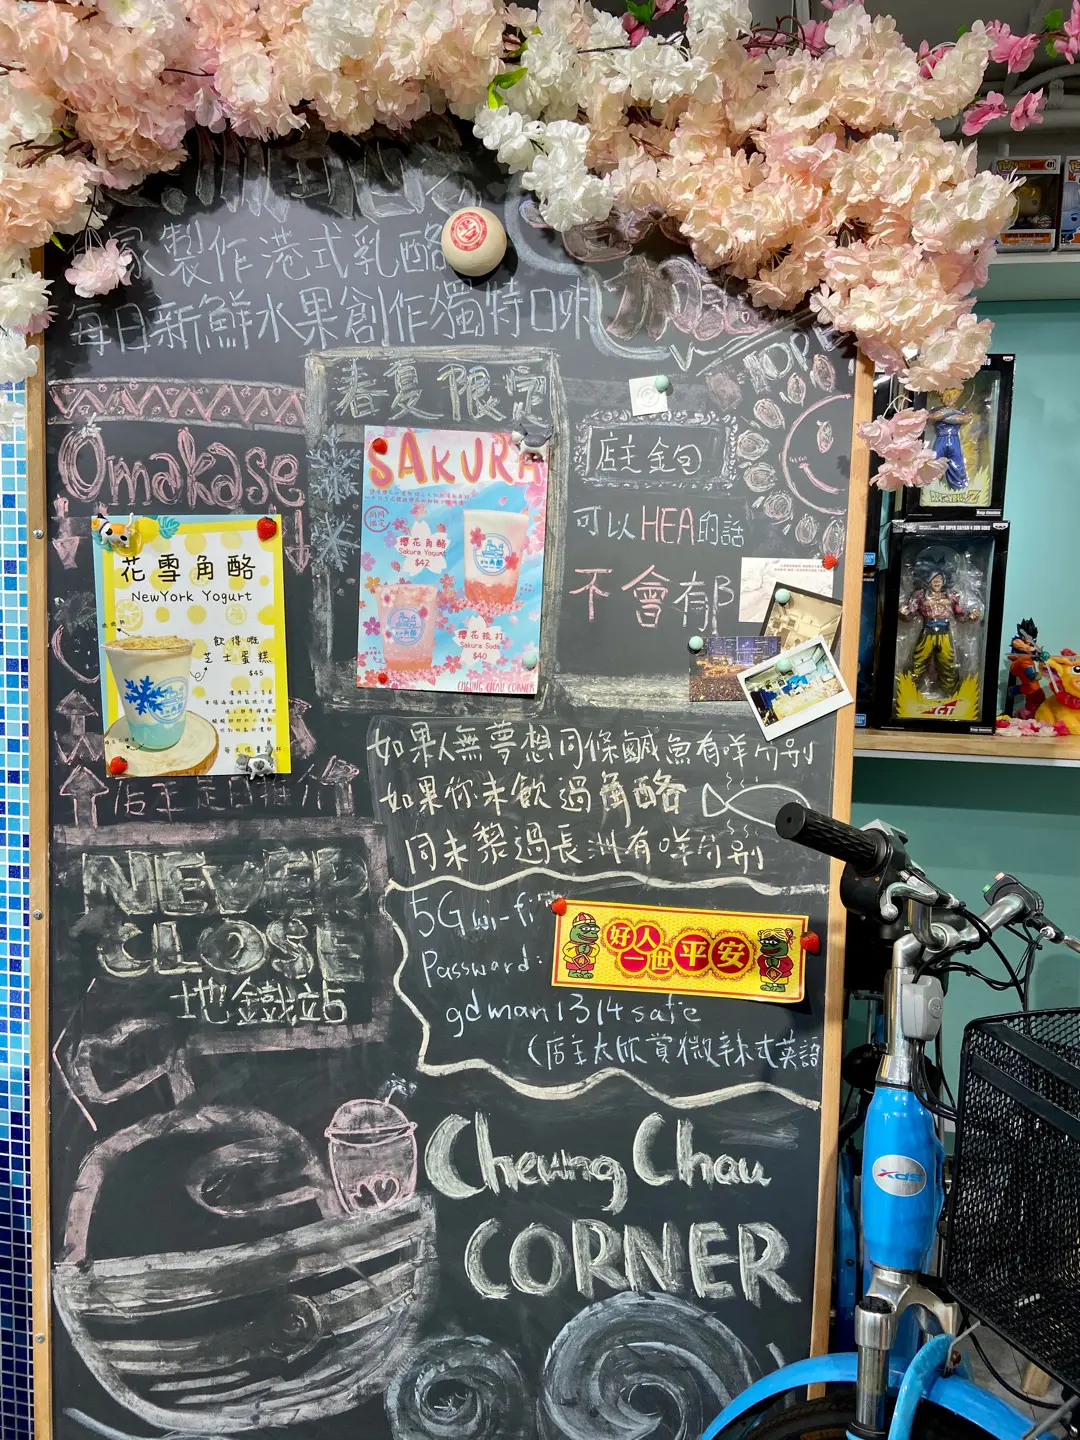 家製作港式乳酪
每日新鮮水果創作獨特口味
HOPE
春夏限定
Omakase
店主金句
可以HEA的話
不會郁
SAKURA
櫻花角酪
Sakura Yogurt
$42
櫻花梳打
Sakura Soda
$40
CHEUNG CHAU CORNER
花雪角酪
NewYork Yogurt
飲得嘅
芝士蛋糕
$45
店主是日推介
如果人無夢想同條鹹魚有咩分別
如果你未飲過角酪
同未黎過長洲有咩分別
NEVER
CLOSE
地鐵站
5G wi-fi
Password:
gdman1314safe
(店主太欣賞微辣式英語
好人
一世
平安
Cheung Chau
CORNER
xds
DRAGONBALL Z